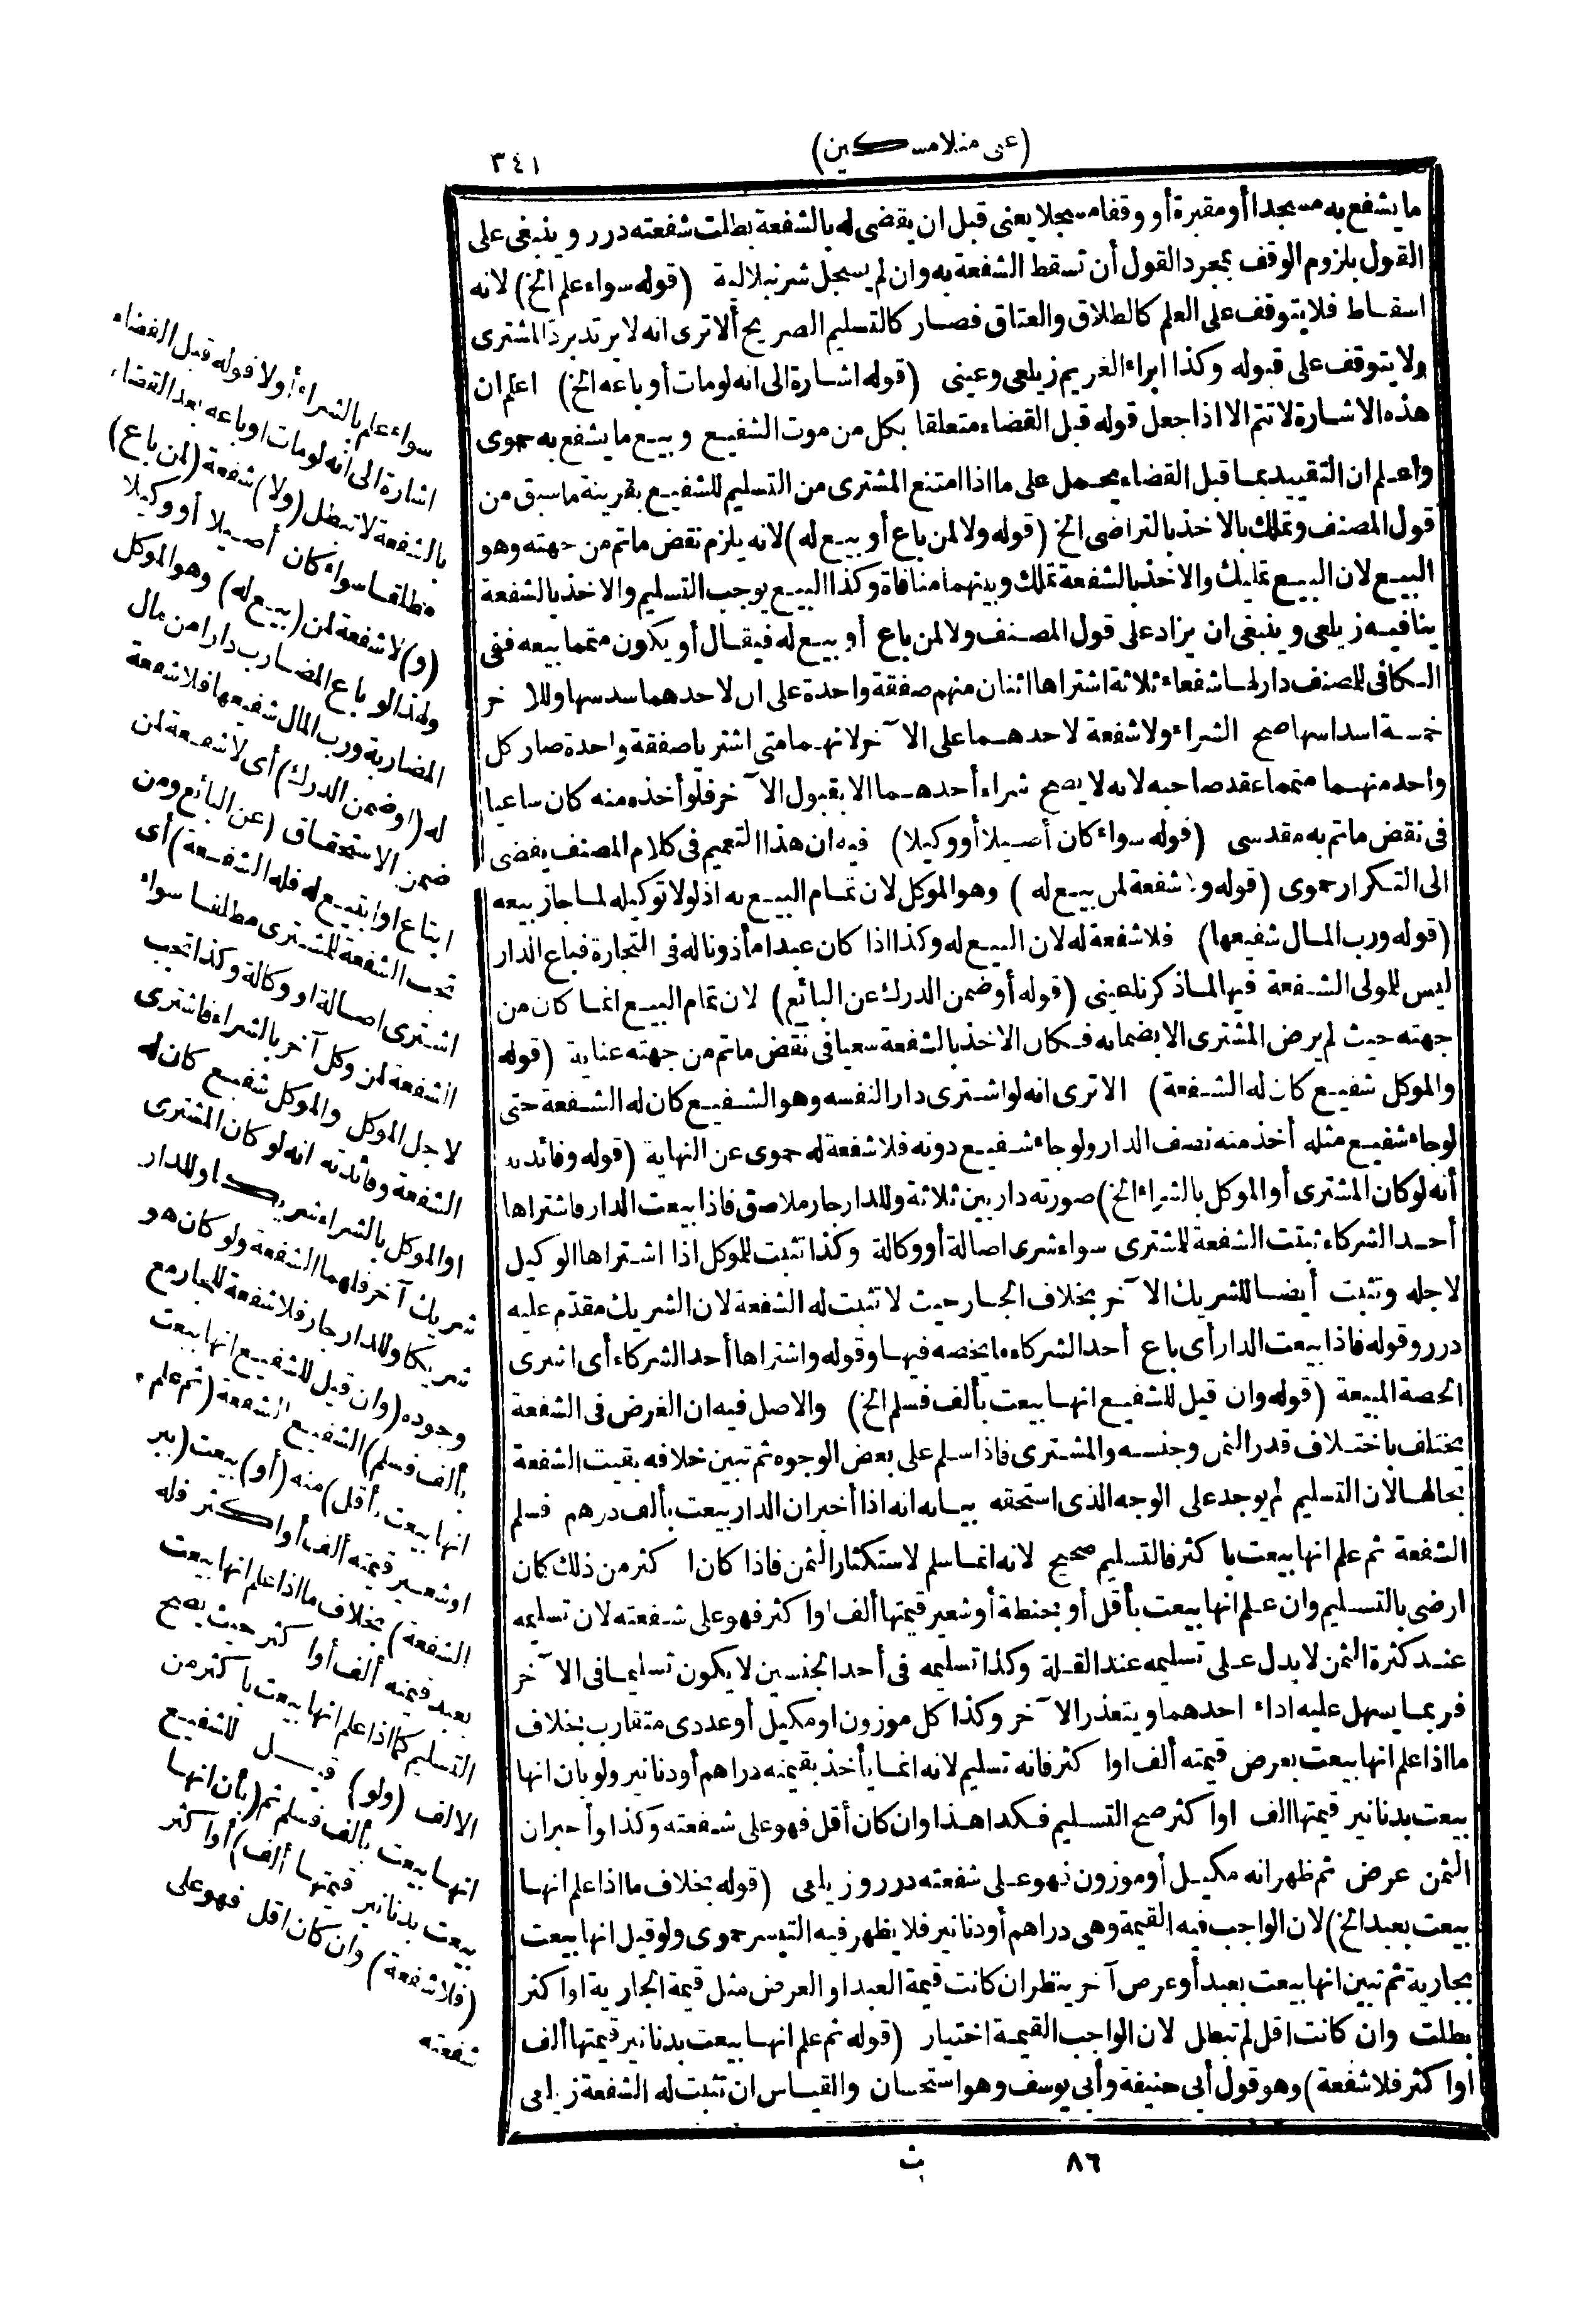 (على منلا مسكين)
٣٤١
ما يشفع به مسجدا أو مقبرة أو وقفا مسجلا يعنى قبل ان يقضى له بالشفعة بطلت شفعته درر وينبغى على
القول بلزوم الوقف بمجرد القول أن تسقط الشفعة به وان لم يسجل شرنبلالية (قوله سواء علم الخ) لانه
اسقاط فلا يتوقف على العلم كالطلاق والعتاق فصار كالتسليم الصريح ألا ترى انه لا يرتد برد المشترى
ولا يتوقف على قبوله وكذا ابراء الغريم زيلعى وعينى (قوله اشارة الى انه لو مات أو باعه الخ) اعلم ان
هذه الاشارة لا تتم الا اذا جعل قوله قبل القضاء متعلقا بكل من موت الشفيع وبيع ما يشفع به حموى
واعلم ان التقييد بما قبل القضاء يحمل على ما اذا امتنع المشترى من التسليم للشفيع بقرينة ما سبق من
قول المصنف وتملك بالاخذ بالتراضى الخ (قوله ولا لمن باع أو بيع له) لانه يلزم نقض ما تم من جهته وهو
البيع لان البيع تمليك والاخذ بالشفعة تملك وبينهما منافاة وكذا البيع يوجب التسليم والاخذ بالشفعة
ينافيه زيلعى وينبغى ان يزاد على قول المصنف ولا لمن باع أو بيع له فيقال أو يكون متمما بيعه ففى
الكافى للمصنف دار لها شفعاء ثلاثة اشتراها اثنان منهم صفقة واحدة على ان لاحدهما سدسها وللآخر
خمسة اسداسها صح الشراء ولا شفعة لاحدهما على الآخر لانهما متى اشتريا صفقة واحدة صار كل
واحد منهما متمما عقد صاحبه لانه لا يصح شراء أحدهما الا بقبول الآخر فلو أخذه منه كان ساعيا
فى نقض ما تم به مقدسى (قوله سواء كان أصيلا أو وكيلا) فيه ان هذا التعميم فى كلام المصنف يفضى
الى التكرار حموى (قوله ولا شفعة لمن بيع له) وهو الموكل لان تمام البيع به اذ لولا توكيله لما جاز بيعه
(قوله ورب المال شفيعها) فلا شفعة له لان البيع له وكذا اذا كان عبدا مأذونا له فى التجارة فباع الدار
ليس للمولى الشفعة فيها لما ذكرنا عينى (قوله أو ضمن الدرك عن البائع) لان تمام البيع انما كان من
جهته حيث لم يرض المشترى الا بضمانه فكان الاخذ بالشفعة سعيا فى نقض ما تم من جهته عناية (قوله
والموكل شفيع كان له الشفعة) الا ترى انه لو اشترى دارا لنفسه وهو الشفيع كان له الشفعة حتى
لو جاء شفيع مثله أخذ منه نصف الدار ولو جاء شفيع دونه فلا شفعة له حموى عن النهاية (قوله وفائدته
أنه لو كان المشترى أو الموكل بالشراء الخ) صورته دار بين ثلاثة وللدار جار ملاصق فاذا بيعت الدار فاشتراها
أحد الشركاء ثبتت الشفعة للمشترى سواء شرى اصالة أو وكالة وكذا تثبت للموكل اذا اشتراها الوكيل
لاجله وتثبت أيضا للشريك الآخر بخلاف الجار حيث لا تثبت له الشفعة لان الشريك مقدم عليه
درر وقوله فاذا بيعت الدار أى باع أحد الشركاء ما يخصه فيها وقوله واشتراها أحد الشركاء أى اشرى
الحصة المبيعة (قوله وان قيل للشفيع انها بيعت بألف فسلم الخ) والاصل فيه ان الغرض فى الشفعة
يختلف باختلاف قدر الثمن وجنسه والمشترى فاذا سلم على بعض الوجوه ثم تبين خلافه بقيت الشفعة
بحالها لان التسليم لم يوجد على الوجه الذى استحقه بيانه انه اذا أخبر ان الدار بيعت بألف درهم فسلم
الشفعة ثم علم انها بيعت باكثر فالتسليم صحيح لانه انما سلم لاستكثار الثمن فاذا كان اكثر من ذلك كان
ارضى بالتسليم وان علم انها بيعت بأقل أو بحنطة أو شعير قيمتها ألف او اكثر فهو على شفعته لان تسليمه
عند كثرة الثمن لا يدل على تسليمه عند القلة وكذا تسليمه فى أحد الجنسين لا يكون تسليما فى الآخر
فربما يسهل عليه اداء احدهما ويتعذر الآخر وكذا كل موزون او مكيل أو عددى متقارب بخلاف
ما اذا علم انها بيعت بعرض قيمته ألف او اكثر فانه تسليم لانه انما يأخذ بقيمته دراهم أو دنانير ولو بان انها
بيعت بدنانير قيمتها الف او اكثر صح التسليم فكدا هذا وان كان أقل فهو على شفعته وكذا وأخبر ان
الثمن عرض ثم ظهر انه مكيل أو موزون فهو على شفعته درر وزيلعى (قوله بخلاف ما اذا علم انها
بيعت بعبد الخ) لان الواجب فيه القيمة وهى دراهم أو دنانير فلا يظهر فيه التيسر حموى ولو قيل انها بيعت
بجارية ثم تبين انها بيعت بعبد أو عرض آخر ينظر ان كانت قيمة العبد او العرض مثل قيمة الجارية او اكثر
بطلت وان كانت اقل لم تبطل لان الواجب القيمة اختيار (قوله ثم علم انها بيعت بدنانير قيمتها ألف
او اكثر فلا شفعة) وهو قول أبى حنيفة وأبى يوسف وهو استحسان والقياس ان تثبت له الشفعة زيلعى
سواء علم بالشراء أولا قوله قبل القضاء
اشارة الى انه لو مات او باعه بعد القضاء
بالشفعة لا تبطل (ولا) شفعة (لمن باع)
مطلقا سواء كان أصيلا أو وكيلا
(و) لا شفعة لمن (بيع له) وهو الموكل
ولهذا لو باع المضارب دارا من مال
المضاربة ورب المال شفيعها فلا شفعة
له (او ضمن الدرك) أى لا شفعة لمن
ضمن الاستحقاق (عن البائع ومن
ابتاع او ابتيع له فله الشفعة) أى
تجب الشفعة للمشترى مطلقا سواء
اشترى اصالة او وكالة وكذا تجب
الشفعة لمن وكل آخر بالشراء فاشترى
لاجل الموكل والموكل شفيع كان له
الشفعة وفائدته انه لو كان المشترى
او الموكل بالشراء شريكا وللدار
شريك آخر فلهما الشفعة ولو كان هو
شريكا وللدار جار فلا شفعة للجار مع
وجوده (وان قيل للشفيع انها بيعت
بألف فسلم) الشفيع الشفعة (ثم علم
انها بيعت بأقل) منه (أو) بيعت (ببر
او شعير قيمته ألف أو اكثر فله
الشفعة) بخلاف ما اذا علم انها بيعت
بعبد قيمته ألف أو اكثر حيث يصح
التسليم كما اذا علم انها بيعت باكثر من
الالف (ولو) قيل للشفيع
انها بيعت بألف فسلم ثم (بان انها
بيعت بدنانير قيمتها ألف) أو اكثر
(فلا شفعة) وان كان اقل فهو على
شفعته
٨٦